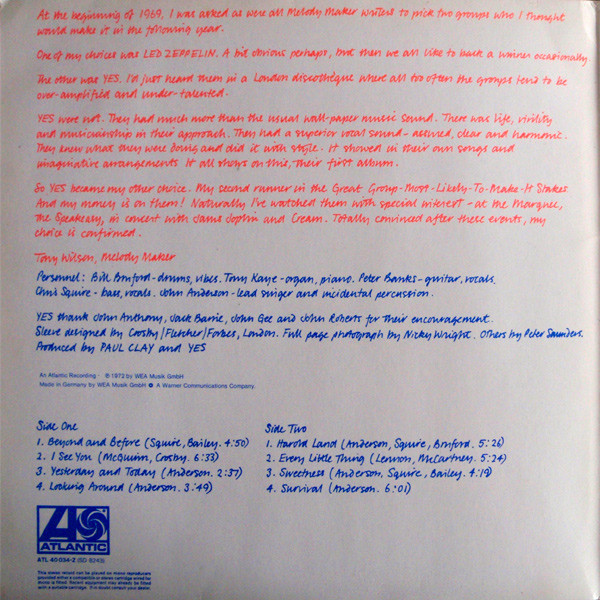 At the beginning of 1969, I was asked as were all Melody Maker writers to pick two groups who I thought
would make it in the following year.
One of my choices was LED ZEPPELIN. A bit obvious perhaps, but then we all like to back a winner occasionally.
The other was YES. I'd just heard them in a London discothèque where all too often the groups tend to be
over-amplified and under-talented.
YES were not. They had much more than the usual wall-paper music sound. There was life, virility
and musicianship in their approach. They had a superior vocal sound - assured, clear and harmonic.
They knew what they were doing and did it with style. It showed in their own songs and
imaginative arrangements. It all shows on this, their first album.
So YES became my other choice. My second runner in the Great Group-Most-Likely-To-Make-It Stakes.
And my money is on them! Naturally I've watched them with special interest - at the Marquee,
the Speakeasy, in concert with Janis Joplin and Cream. Totally convinced after these events, my
choice is confirmed.
Tony Wilson, Melody Maker
Personnel: Bill Bruford - drums, vibes. Tony Kaye - organ, piano. Peter Banks - guitar, vocals.
Chris Squire - bass, vocals. John Anderson - lead singer and incidental percussion.
YES thank John Anthony, Jack Barrie, John Gee and John Roberts for their encouragement.
Sleeve designed by Crosby/Fletcher/Forbes, London. Full page photograph by Nicky Wright. Others by Peter Saunders.
Produced by PAUL CLAY and YES
An Atlantic Recording · ℗ 1972 by WEA Musik GmbH
Made in Germany by WEA Musik GmbH A Warner Communications Company.
Side One
1. Beyond and Before (Squire, Bailey. 4:50)
2. I See You (McGuinn, Crosby. 6:33)
3. Yesterday and Today (Anderson. 2:37)
4. Looking Around (Anderson. 3:49)
Side Two
1. Harold Land (Anderson, Squire, Bruford. 5:26)
2. Every Little Thing (Lennon, McCartney. 5:24)
3. Sweetness (Anderson, Squire, Bailey. 4:19)
4. Survival (Anderson. 6:01)
ATLANTIC
ATL 40 034-2 (SD 8243)
This stereo record can be played on mono reproducers
provided either a compatible or stereo cartridge wired for
mono is fitted. Recent equipment may already be fitted
with a suitable cartridge. If in doubt consult your dealer.